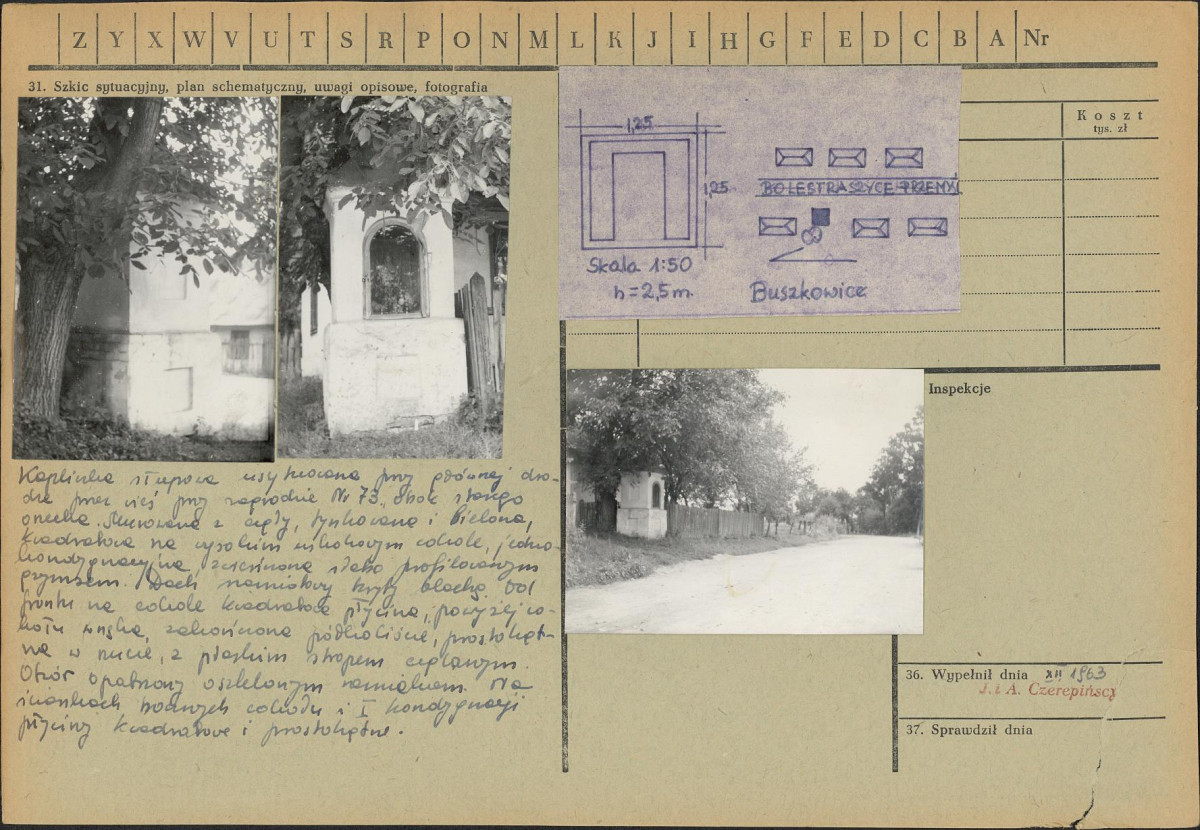 Z Y X W V U T S R P O N M L K J I H G F E D C B A Nr
31. Szkic sytuacyjny, plan schematyczny, uwagi opisowe, fotografia
Koszt
tys. zł
1,25
1,25
Skala 1:50
h=2,5m.
BOLESTRASZYCE PRZEMYŚ
Buszkowice
Inspekcje
Kapliczka słupowa usytuowana przy głównej dro-
dze przez wieś przy zagrodzie Nr 73. Obok starego
orzecha. Murowana z cegły, tynkowana i bielona,
kwadratowa na wysokim cokole, jedno-
kondygnacyjna, zwieńczona słabo profilowanym
gzymsem. Dach namiotowy kryty blachą. Od
frontu na cokole kwadratowa płycina, powyżej co-
kołu wnęka, zakończona półkoliście, prostokąt-
na w rzucie, z płaskim stropem ceglanym.
Otwór opatrzony oszklonym ramiakiem. Na
ściankach bocznych cokołu i I kondygnacji
płyciny kwadratowe i prostokątne.
36. Wypełnił dnia XII 1963
J. i A. Czerepińscy
37. Sprawdził dnia